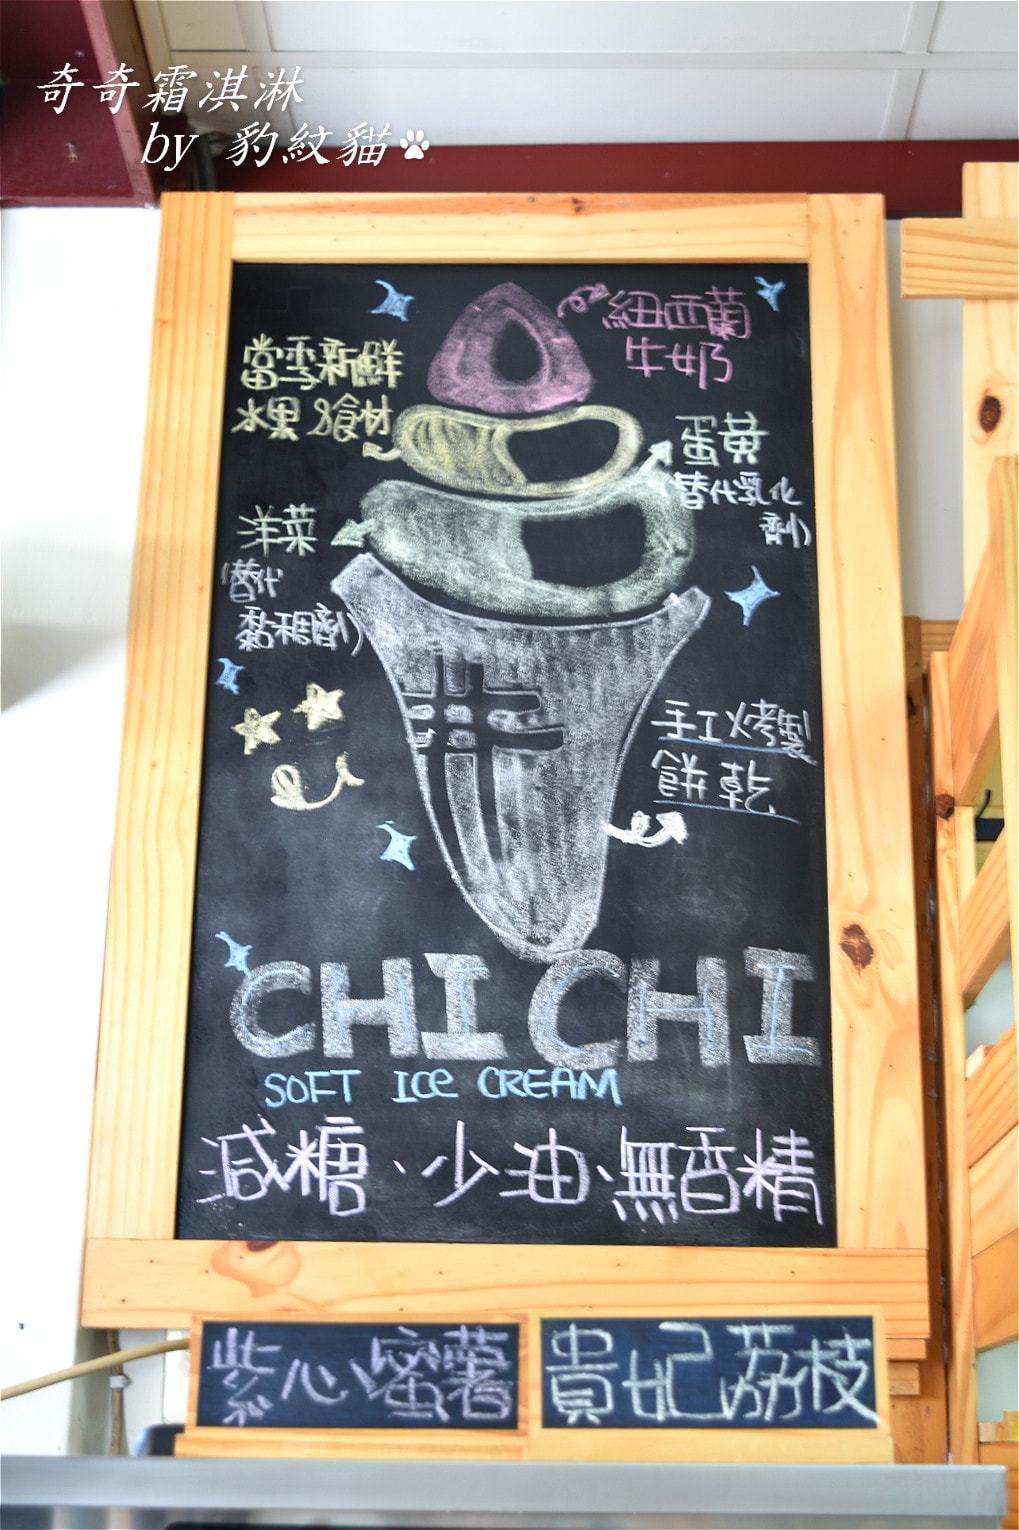 奇奇霜淇淋
by 豹紋貓
紐西蘭
牛奶
當季新鮮
水果&食材
蛋黃
(替代乳化
劑)
洋菜
(替代
黏稠劑)
手工烤製
餅乾
CHI CHI
SOFT ICE CREAM
減糖、少油、無香精
紫心蜜薯
貴妃荔枝